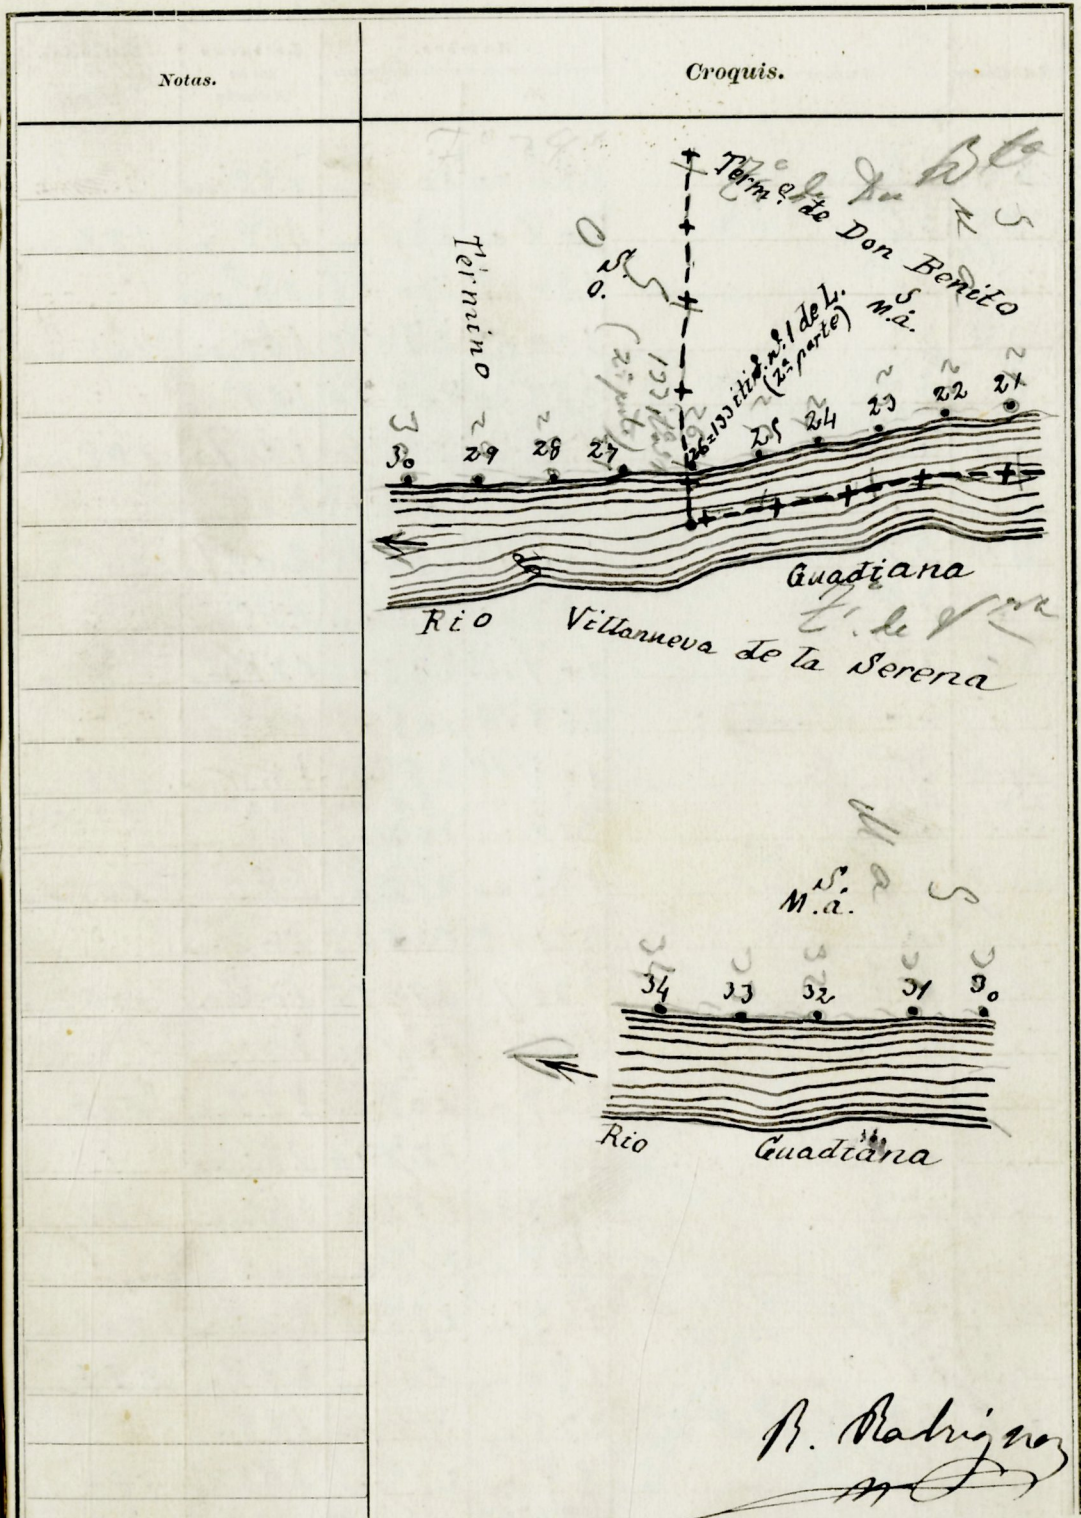 Notas.
Croquis.
Term.º de Don Benito
Término
S.
O.
S.
M.a.
26=133 itin.º n.º 1 de L.
(2ª parte)
30 29 28 27 25 24 23 22 21
Guadiana
Rio
Villanueva de la Serena
S.
M.a.
34 33 32 31 30
Rio Guadiana
R. Rodriguez